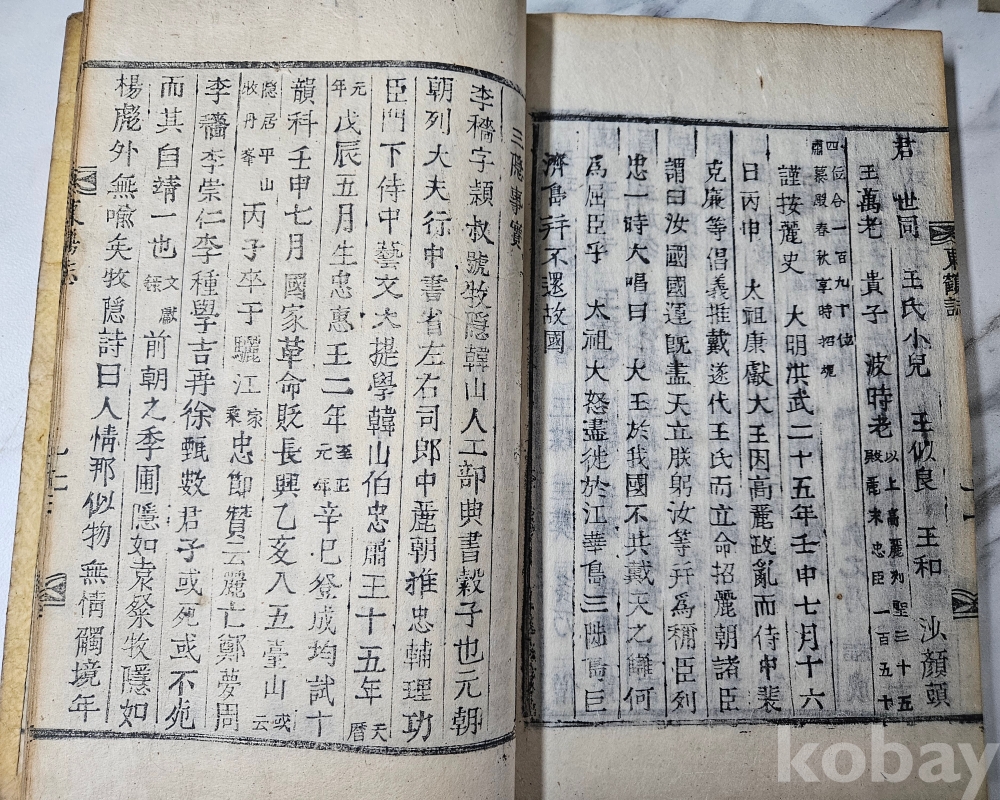 東鶴誌
君 世同 王氏小兒 王似良 王和 沙顔頭
王萬老 貴子 波時老 以上高麗列聖三十五殿麗末忠臣一百五十
四位合一百九十位肅慕殿春秋享時招魂
謹按麗史 大明洪武二十五年壬申七月十六
日丙申 太祖康獻大王因高麗政亂而侍中裴
克廉等倡義推戴遂代王氏而立命招麗朝諸臣
謂曰汝國國運旣盡天立朕躬汝等并爲稱臣列
忠一時大唱曰 大王於我國不共戴天之讎何
爲屈臣乎 太祖大怒盡徙於江華島三陟島巨
濟島并不還故國
三隱事實
李穡字頴叔號牧隱韓山人工部典書穀子也元朝
朝列大夫行中書省左右司郎中麗朝推忠輔理功
臣門下侍中藝文大提學韓山伯忠肅王十五年 天曆
元年 戊辰五月生忠惠王二年 至正元年 辛巳登成均試十
韻科壬申七月國家革命貶長興乙亥入五臺山 或云
隱居平山牧丹峯 丙子卒于驪江 家乘 忠節贊云麗亡鄭夢周
李穡李崇仁李種學吉再徐甄數君子或死或不死
而其自靖一也 文獻錄 前朝之季圃隱如袁粲牧隱如
楊彪外無喩矣牧隱詩曰人情那似物無情觸境年
kobay